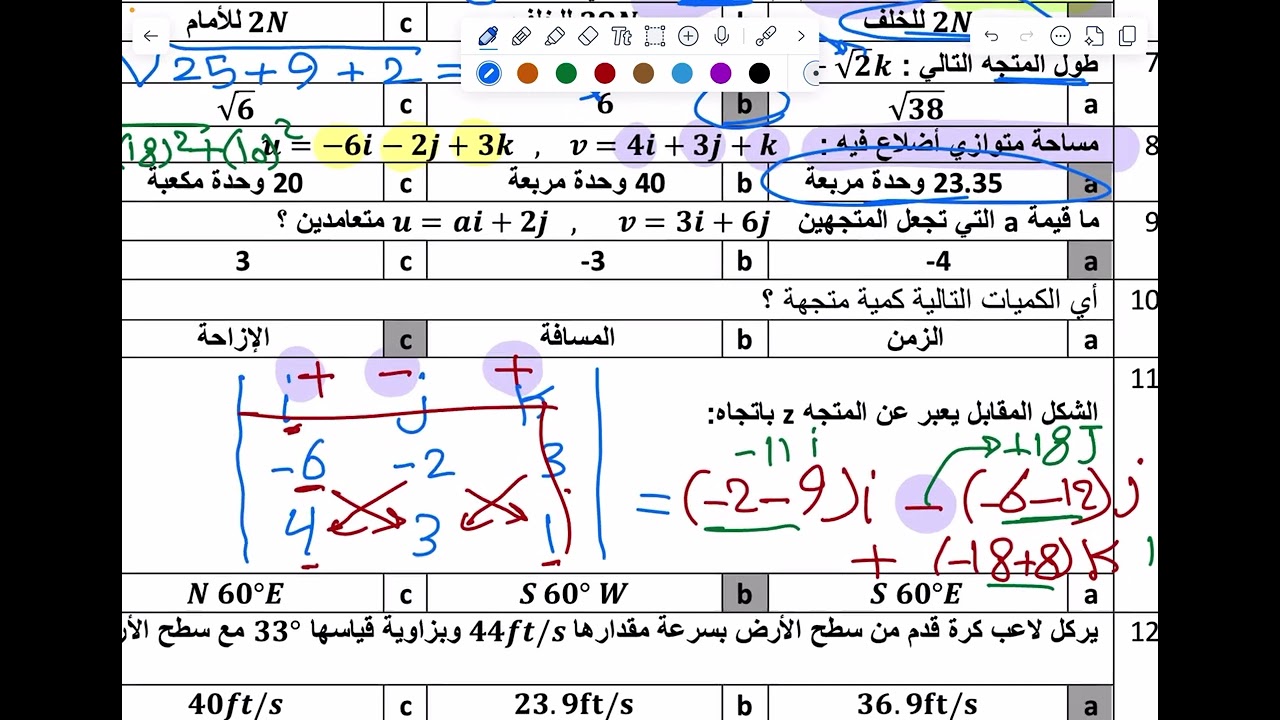 a 2N للخلف b c 2N للأمام
7 طول المتجه التالي : √2k
√25+9+2 =
a √38 b 6 c √6
8 مساحة متوازي أضلاع فيه : u = −6i − 2j + 3k , v = 4i + 3j + k
a 23.35 وحدة مربعة b 40 وحدة مربعة c 20 وحدة مكعبة
9 ما قيمة a التي تجعل المتجهين u = ai + 2j , v = 3i + 6j متعامدين ؟
a -4 b -3 c 3
10 أي الكميات التالية كمية متجهة ؟
a الزمن b المسافة c الإزاحة
11 الشكل المقابل يعبر عن المتجه z باتجاه:
i + − j + k
-6 -2 3
4 3 1
-11 i +18J
= (-2-9)i − (-6-12)j
+ (-18+8)K
a S 60°E b S 60° W c N 60°E
12 يركل لاعب كرة قدم من سطح الأرض بسرعة مقدارها 44ft/s وبزاوية قياسها 33° مع سطح
a 36.9ft/s b 23.9ft/s c 40ft/s